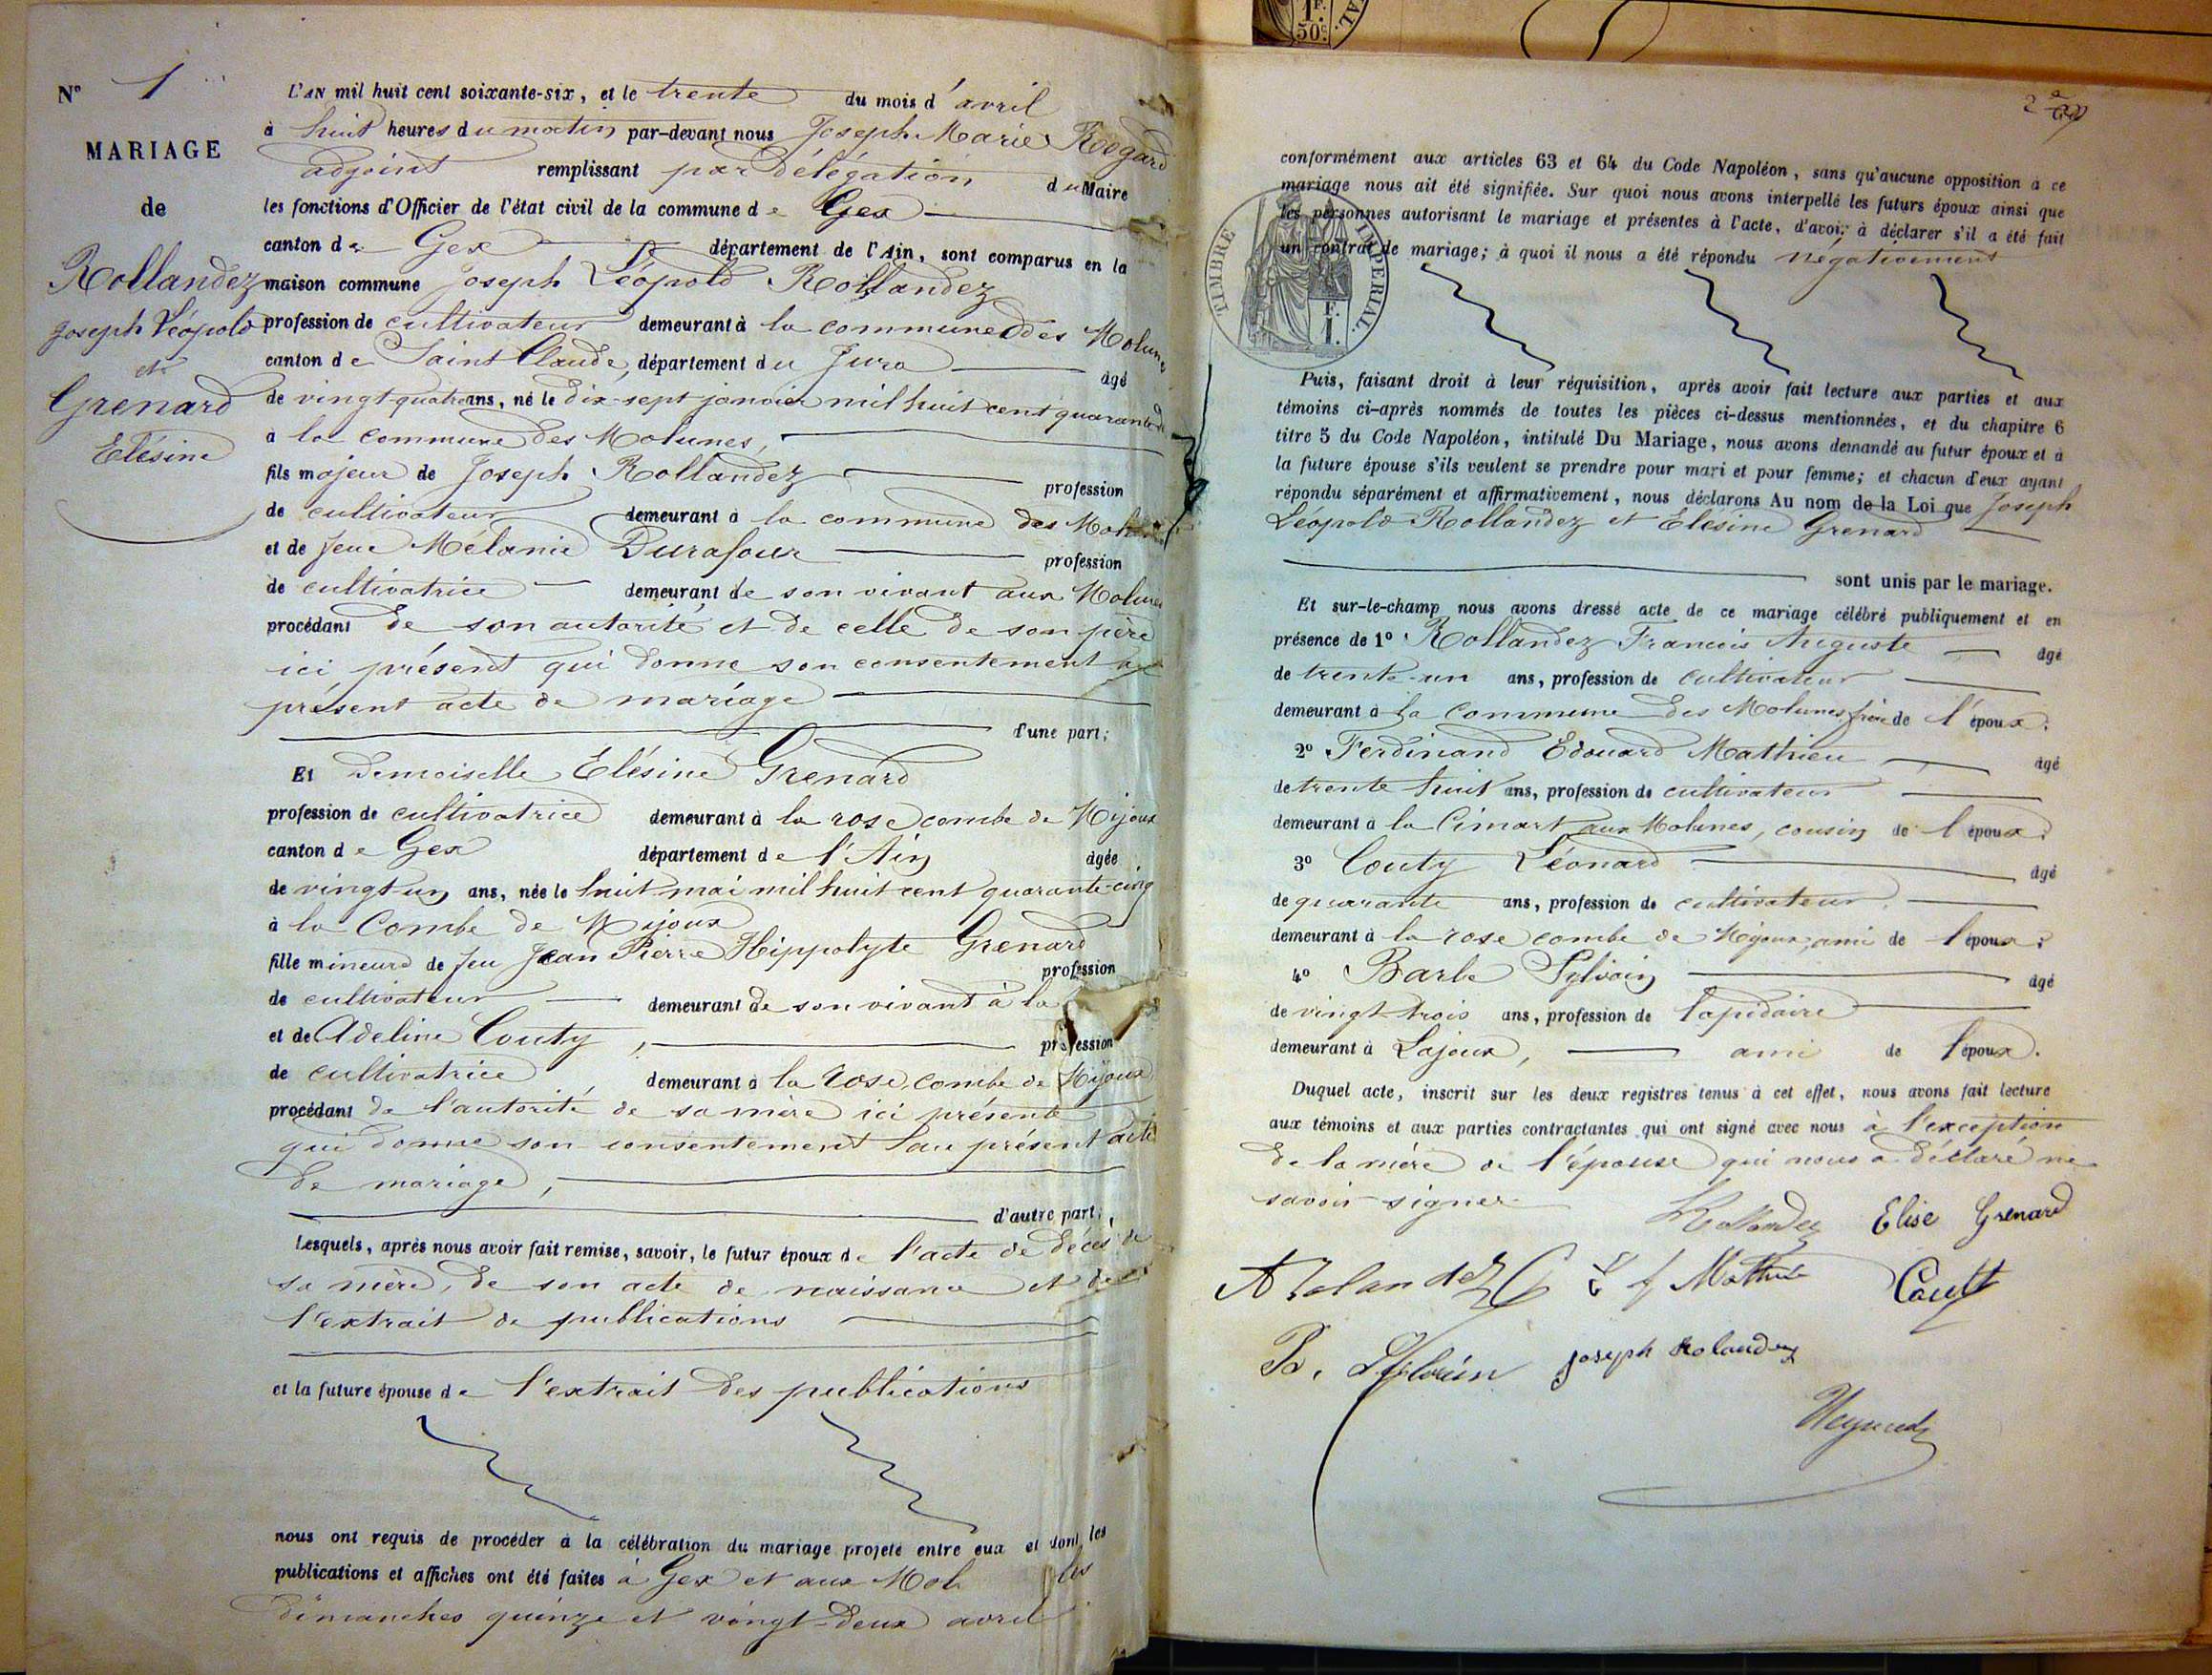 N° 1
MARIAGE
de
Rollandez
Joseph Léopold
et
Grenard
Elésine
L'AN mil huit cent soixante-six, et le trente du mois d'avril
à huit heures du matin par-devant nous Joseph Marie Regard
adjoint remplissant par délégation du Maire
les fonctions d'Officier de l'état civil de la commune de Gex
canton de Gex département de l'Ain, sont comparus en la
maison commune Joseph Léopold Rollandez
profession de cultivateur demeurant à la commune des Molunes
canton de Saint Claude, département du Jura âgé
de vingt quatre ans, né le dix-sept janvier mil huit cent quarante
à la commune des Molunes,
fils majeur de Joseph Rollandez profession
de cultivateur demeurant à la commune des Molunes
et de feue Mélanie Durafour profession
de cultivatrice demeurant de son vivant aux Molunes
procédant de son autorité et de celle de son père
ici présent qui donne son consentement au
présent acte de mariage
d'une part;
Et demoiselle Elésine Grenard
profession de cultivatrice demeurant à la rose combe de Mijoux
canton de Gex département de l'Ain âgée
de vingt un ans, née le huit mai mil huit cent quarante-cinq
à la Combe de Mijoux
fille mineure de feu Jean Pierre Hippolyte Grenard
profession
de cultivateur demeurant de son vivant à la
et de Adeline Couty, profession
de cultivatrice demeurant à la rose combe de Mijoux
procédant de l'autorité de sa mère ici présente
qui donne son consentement au présent acte
de mariage,
d'autre part;
Lesquels, après nous avoir fait remise, savoir, le futur époux de l'acte de décès de
sa mère, de son acte de naissance et de
l'extrait de publications
et la future épouse de l'extrait des publications
nous ont requis de procéder à la célébration du mariage projeté entre eux et dont les
publications et affiches ont été faites à Gex et aux Mol les
dimanches quinze et vingt-deux avril
2
conformément aux articles 63 et 64 du Code Napoléon, sans qu'aucune opposition à ce
mariage nous ait été signifiée. Sur quoi nous avons interpellé les futurs époux ainsi que
les personnes autorisant le mariage et présentes à l'acte, d'avoir à déclarer s'il a été fait
un contrat de mariage; à quoi il nous a été répondu négativement
TIMBRE IMPERIAL.
1 F.
Puis, faisant droit à leur réquisition, après avoir fait lecture aux parties et aux
témoins ci-après nommés de toutes les pièces ci-dessus mentionnées, et du chapitre 6
titre 5 du Code Napoléon, intitulé Du Mariage, nous avons demandé au futur époux et à
la future épouse s'ils veulent se prendre pour mari et pour femme; et chacun d'eux ayant
répondu séparément et affirmativement, nous déclarons Au nom de la Loi que Joseph
Léopold Rollandez et Elésine Grenard
sont unis par le mariage.
Et sur-le-champ nous avons dressé acte de ce mariage célébré publiquement et en
présence de 1° Rollandez François Auguste âgé
de trente-un ans, profession de cultivateur
demeurant à la Commune des Molunes, frère de l'époux;
2° Ferdinand Edouard Mathieu âgé
de trente huit ans, profession de cultivateur
demeurant à la Cimart aux Molunes, cousin de l'époux;
3° Couty Léonard âgé
de quarante ans, profession de cultivateur,
demeurant à la rose combe de Mijoux, ami de l'époux;
4° Barbe Sylvain âgé
de vingt-trois ans, profession de lapidaire
demeurant à Lajoux, ami de l'époux.
Duquel acte, inscrit sur les deux registres tenus à cet effet, nous avons fait lecture
aux témoins et aux parties contractantes qui ont signé avec nous à l'exception
de la mère de l'épouse qui nous a déclaré ne
savoir signer
Rollandez Elise Grenard
A Rolandez E f Mathieu Couty
B. Sylvain Joseph Rolandez
Regard
1 F.
50 c.